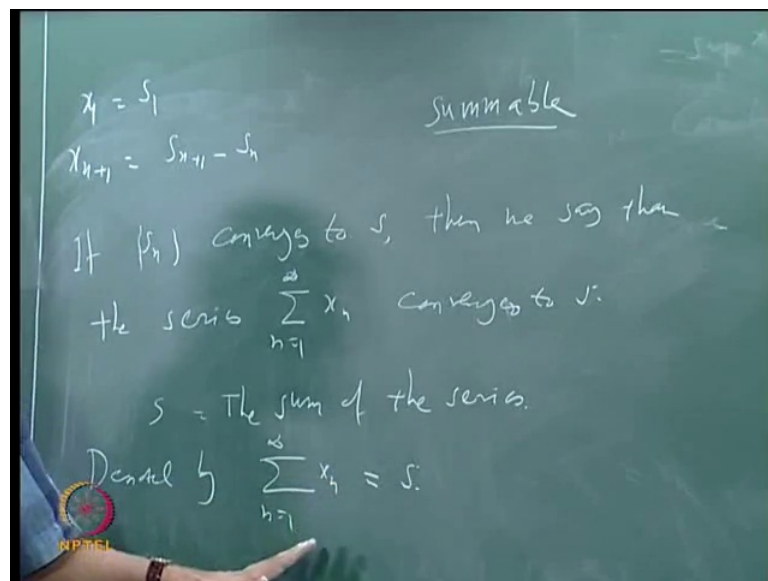 x₁ = S₁
summable
xₙ₊₁ = Sₙ₊₁ - Sₙ
If (sₙ) converges to s, then we say than
the series ∑_{n=1}^{∞} xₙ converges to s.
s = The sum of the series.
Denoted by ∑_{n=1}^{∞} xₙ = s.
NPTEL